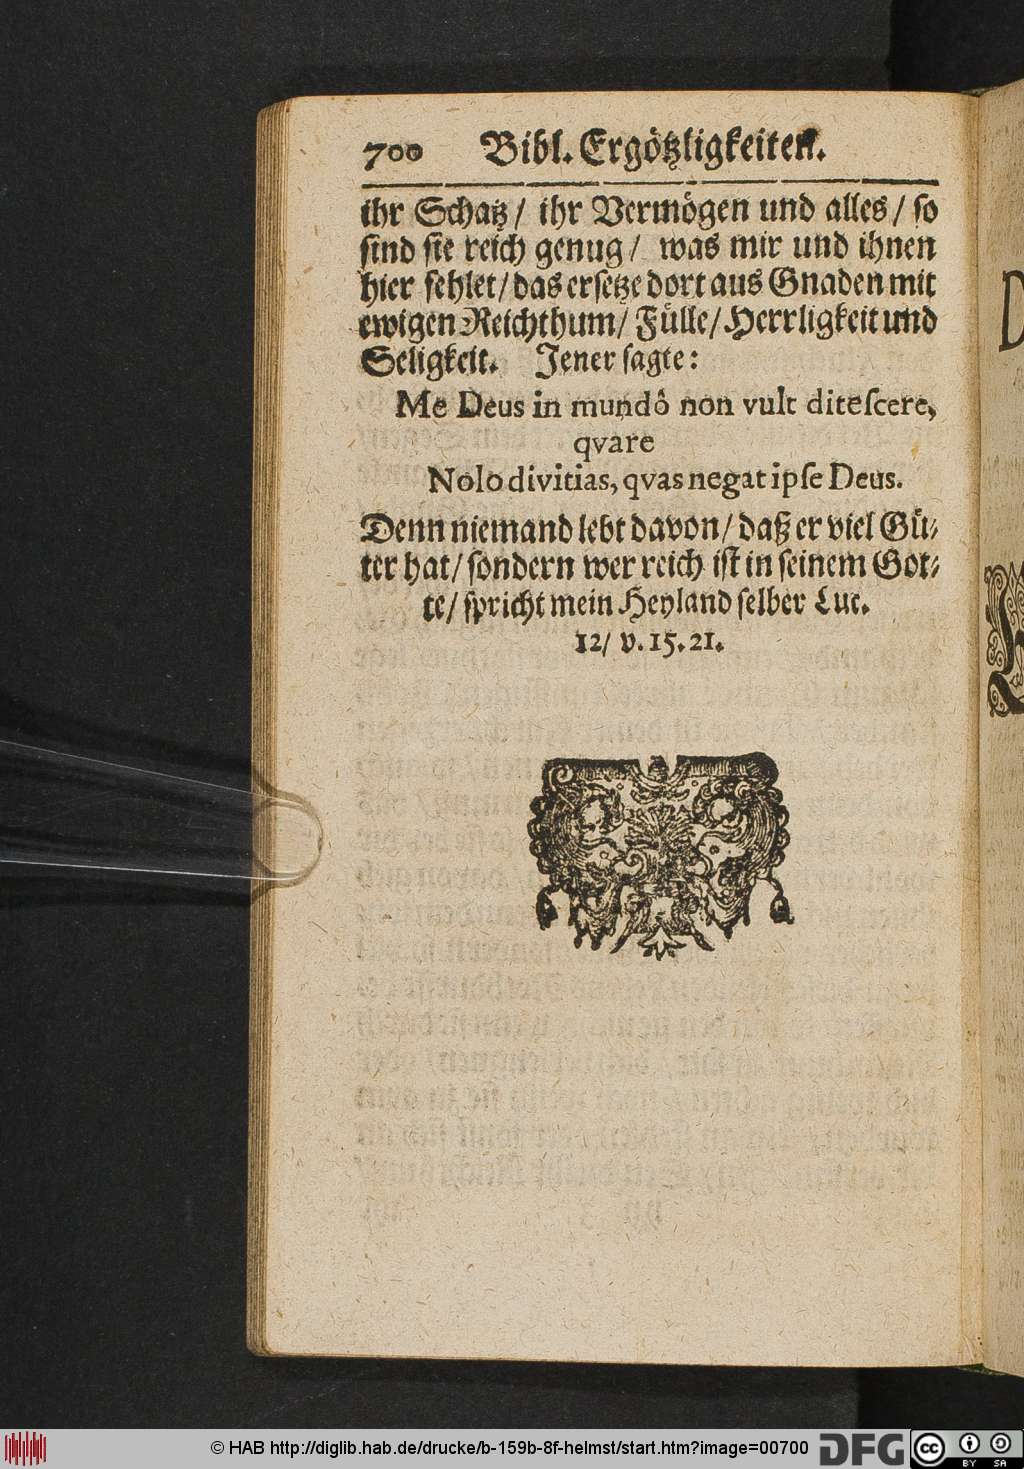 700 Bibl. Ergötzligkeiten.
ihr Schatz/ ihr Vermögen und alles/ so
sind sie reich genug/ was mir und ihnen
hier fehlet/ das ersetze dort aus Gnaden mit
ewigen Reichthum/ Fülle/ Herrligkeit und
Seligkeit. Jener sagte:
Me Deus in mundô non vult ditescere,
qvare
Nolo divitias, qvas negat ipse Deus.
Denn niemand lebt davon/ daß er viel Gü-
ter hat/ sondern wer reich ist in seinem Got-
te/ spricht mein Heyland selber Luc.
12/ v. 15. 21.
© HAB http://diglib.hab.de/drucke/b-159b-8f-helmst/start.htm?image=00700 DFG cc BY SA